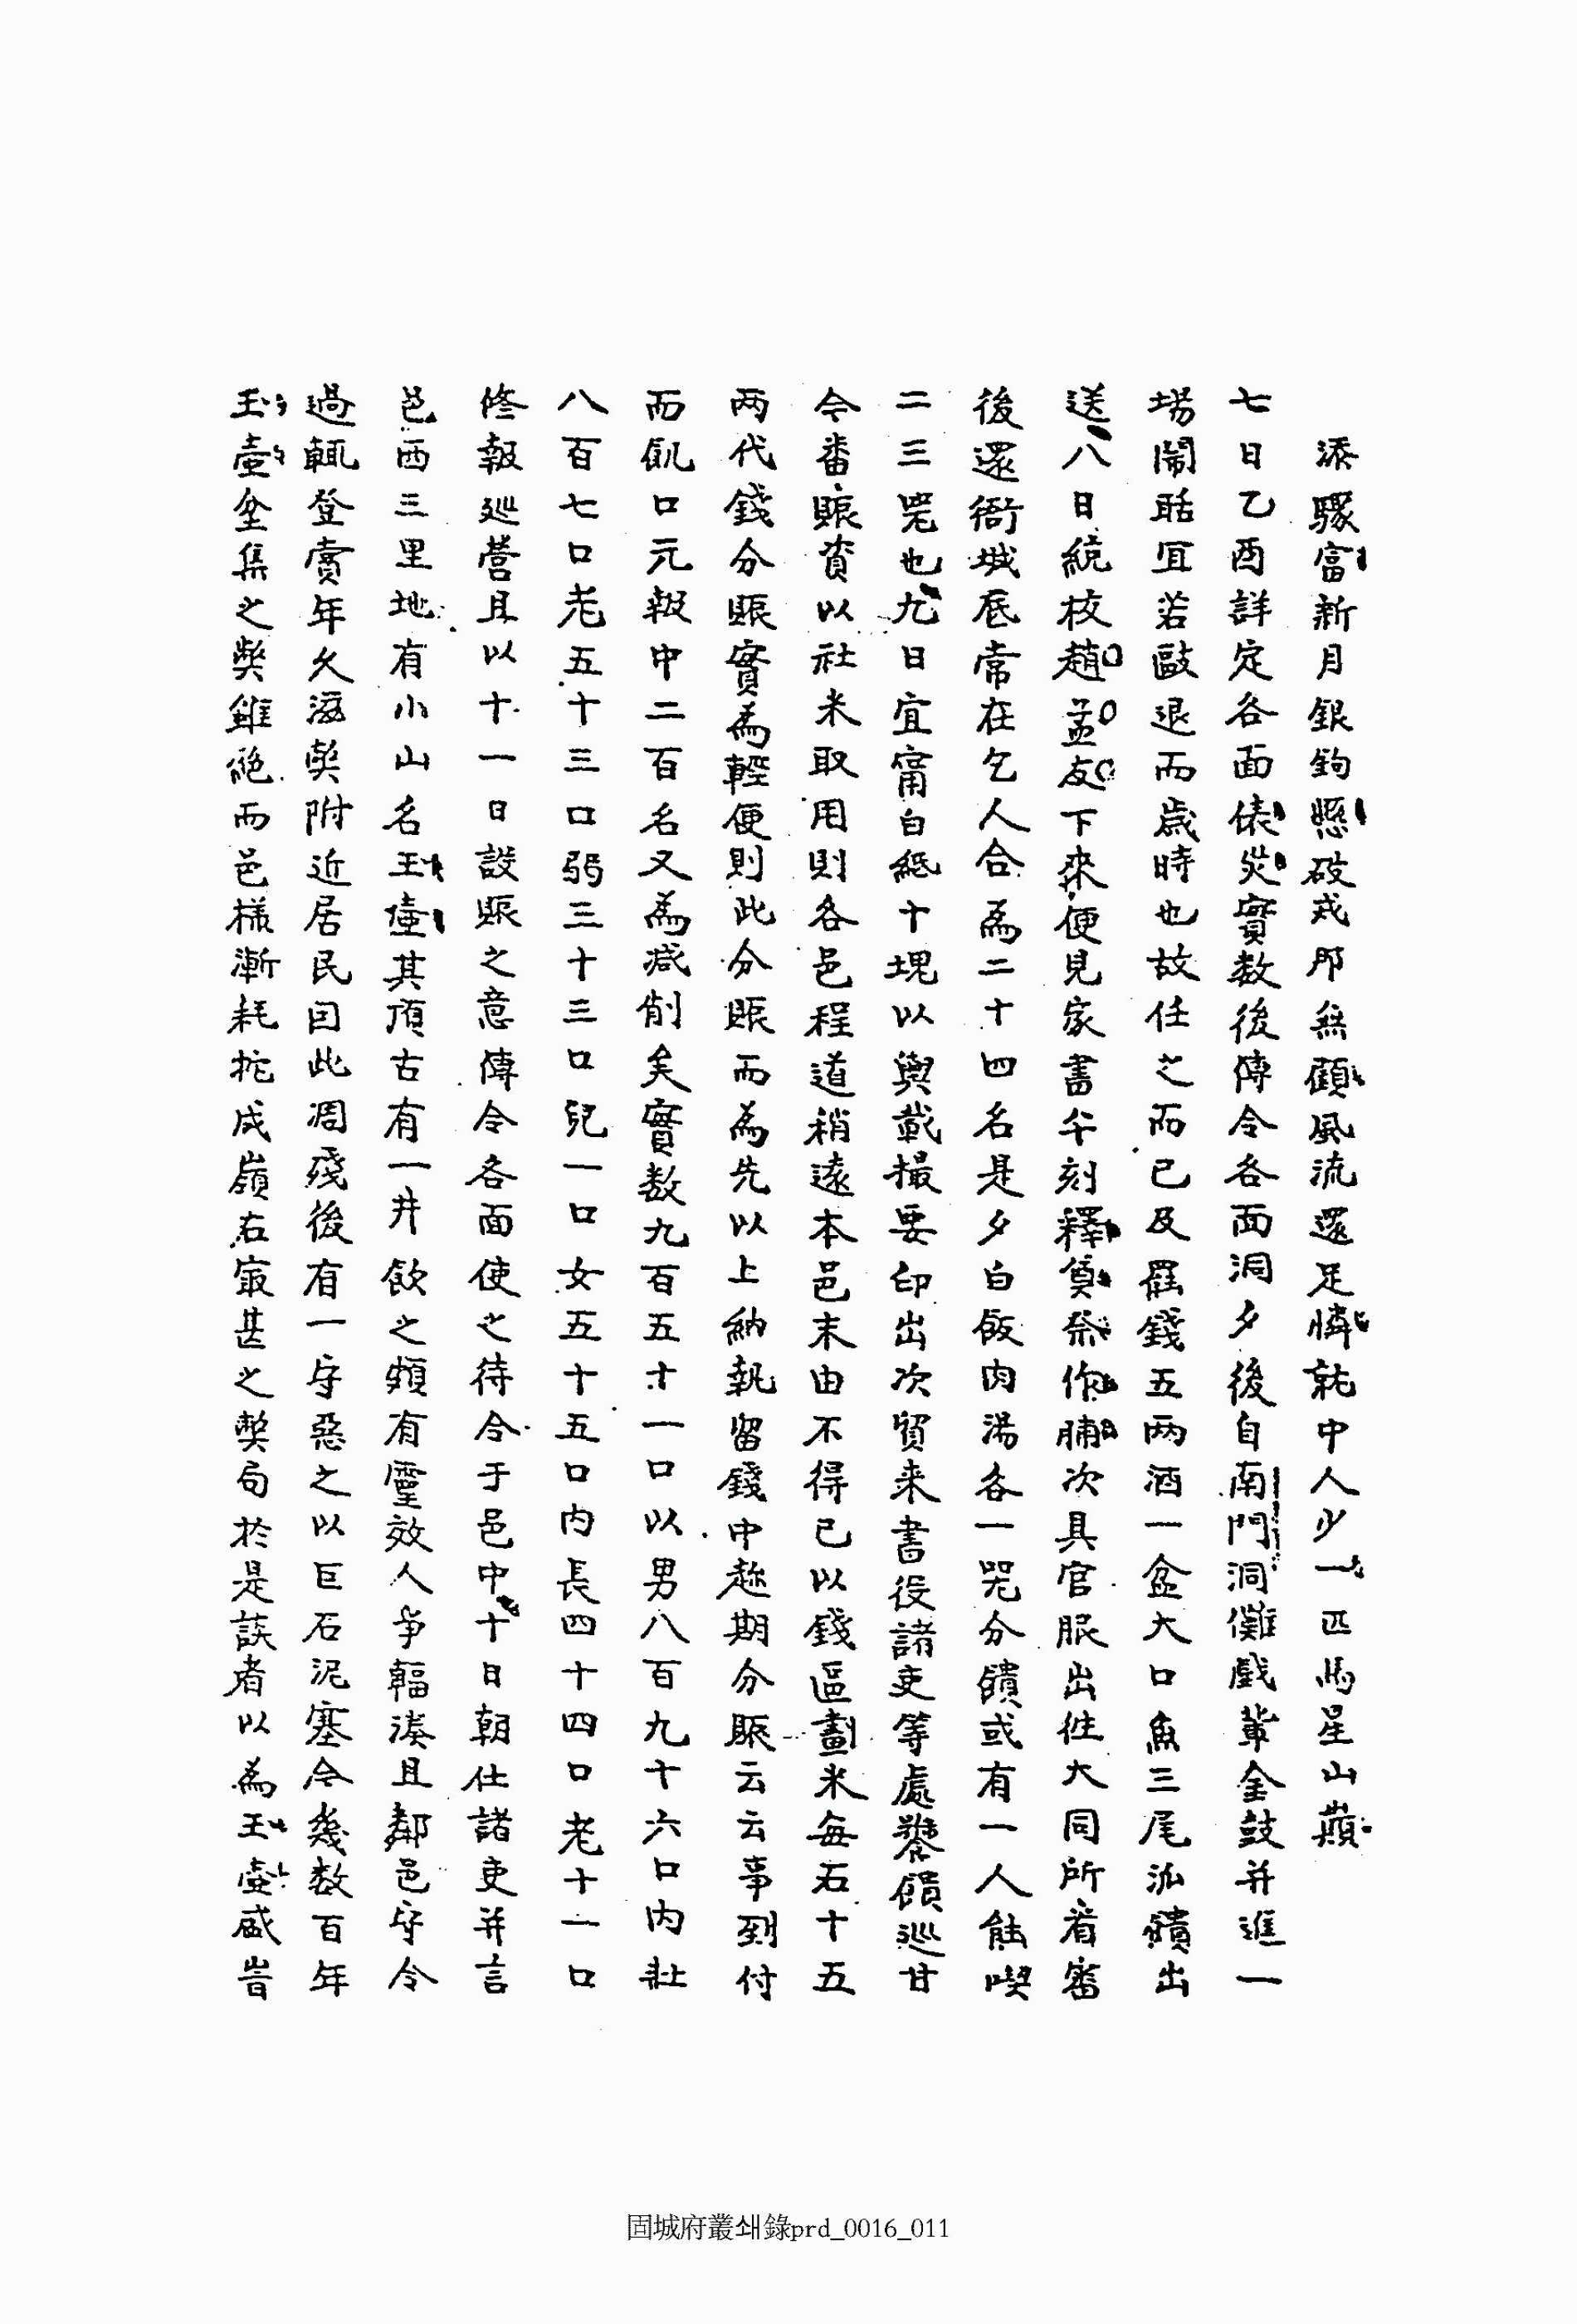 添驟富新月銀鉤懸破戎那無顧風流還足憐就中人少一匹馬星山巔
七日乙酉詳定各面俵災實數後傳令各面洞夕後自南門洞儺戲輩金鼓并進一
場鬧聒宜若敺退而歲時也故任之而已及罷錢五兩酒一盆大口魚三尾派饋出
送八日統校趙孟友下來便見家書午刻釋奠祭作脯次具官服出往大同所看審
後還衙城底常在乞人合爲二十四名是夕白飯肉湯各一器分饋或有一人能喫
二三器也九日宜甯白紙十塊以輿載撮要印出次貿来書役諸吏等處釋饋巡甘
今番賑資以社米取用則各邑程道稍遠本邑末由不得已以錢區劃米每石十五
兩代錢分賑實爲輕便則此分賑而爲先以上納執留錢中趂期分賑云云事到付
而飢口元報中二百名又爲减削矣實數九百五十一口以男八百九十六口內壯
八百七口老五十三口弱三十三口兒一口女五十五口內長四十四口老十一口
修報廵營且以十一日設賑之意傳令各面使之待令于邑中十日朝仕諸吏并言
邑西三里地有小山名玉壺其頂古有一井飮之頗有靈效人爭輻湊且鄰邑守令
過輒登賞年久滋弊附近居民因此凋殘後有一守惡之以巨石泥塞今幾數百年
玉壺坌集之弊雖絶而邑樣漸耗挓成嶺右寂甚之弊局於是談者以爲玉壺盛旹